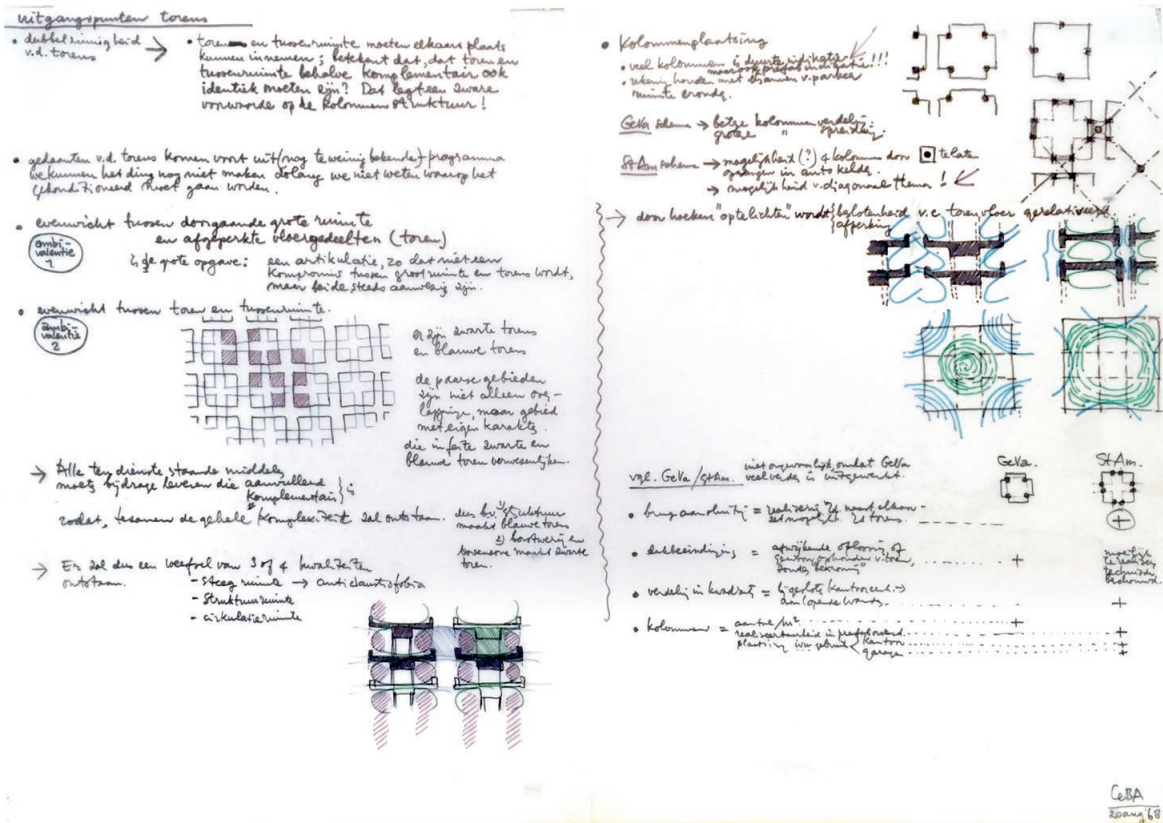 uitgangspunten torens
• dubbelzinnigheid
v.d. torens
• toren en tussenruimte moeten elkaars plaats
kunnen innemen; betekent dat, dat toren en
tussenruimte behalve komplementair ook
identiek moeten zijn? Dat legt een zware
voorwaarde op de kolommen struktuur!
• gedaanten v.d. torens komen voort uit (nog te weinig bekende) programma
we kunnen het ding nog niet maken zolang we niet weten waarop het
gekonditioneerd moet gaan worden.
• evenwicht tussen doorgaande grote ruimte
en afgeperkte vloergedeelten (toren)
ambi-
valentie
1
de grote opgave: een artikulatie, zo dat niet een
kompromis tussen grootruimte en torens wordt,
maar beide steeds aanwezig zijn.
• evenwicht tussen toren en tussenruimte.
ambi-
valentie
2
er zijn zwarte torens
en blauwe torens
de paarse gebieden
zijn niet alleen over-
lapping, maar gebied
met eigen karakter.
die in feite zwarte en
blauwe toren verwesenlijken.
→ Alle ten dienste staande middelen
moeten bijdrage leveren die aanvullend
komplementair
zodat, tesamen de gehele komplexiteit zal ontstaan.
dus bv. 1) struktuur
maakt blauwe toren
2)
maakt zwarte
toren.
→ Er zal dus een weefsel van 3 of 4 kwaliteiten
ontstaan.
- steegruimte → anticlaustrofobia
- struktuurruimte
- cirkulatieruimte
• Kolommenplaatsing
• veel kolommen is duurte indikatie !!!
maar ook prefab indikatie
• rekening houden met v. parkeer
ruimte eronder.
GeVa schema → betere kolommen verdeling
grotere " spreiding.
StAm schema → mogelijkheid (?) 4 kolommen door te laten
in auto kelder
→ mogelijkheid v. diagonaal thema !
→ door hoeken "op te lichten" wordt beslotenheid v.e. torenvloer gerelativeerd
afperking
vgl. GeVa/StAm. niet omdat GeVa
veel verder is uitgewerkt.
GeVa. StAm.
• brugaansluiting = realisering 2 naast elkaar
mogelijk. 2 torens. +
• dakbeeindiging = afwijkende oplossing of
zonder "bekroning" +
moeilijk
te realiseren
technisch
• verdeling in kwadraten = bij gesloten kantoreenh.
dan lopende wanden. +
• kolommen = aantal/m² +
realiseerbaarheid in prefab +
plaatsing ivm gebruik kantoor +
garage +
CeBA
20 aug '68